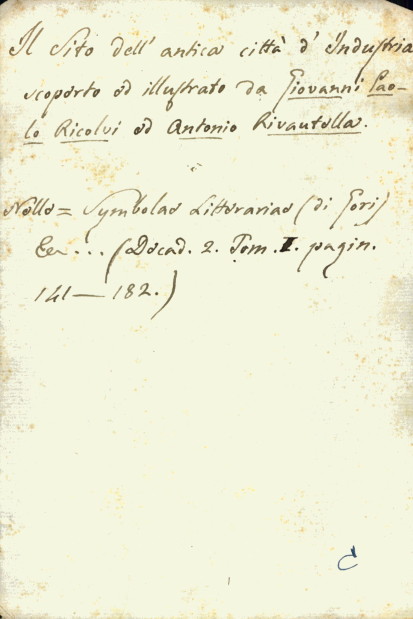 Il Sito dell' antica città d' Industria
scoperto ed illustrato da Giovanni Pao-
lo Ricolvi ed Antonio Rivautella.
Nelle = Symbolae Litterariae (di Gori)
Ec... (Decad. 2. Tom. I. pagin.
141 — 182.)
C